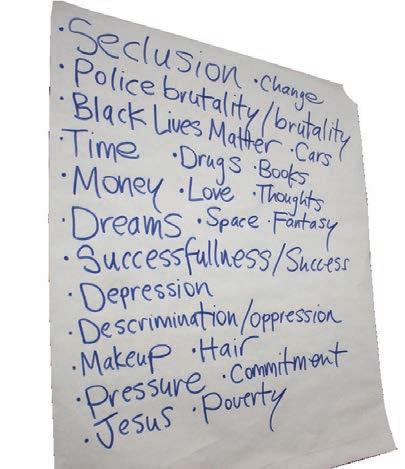 · Seclusion · Change
· Police brutality/brutality
· Black Lives Matter · Cars
· Time · Drugs · Books
· Money · Love · Thoughts
· Dreams · Space · Fantasy
· Successfullness/Success
· Depression
· Descrimination/oppression
· Makeup · Hair
· Pressure · Commitment
· Jesus · Poverty